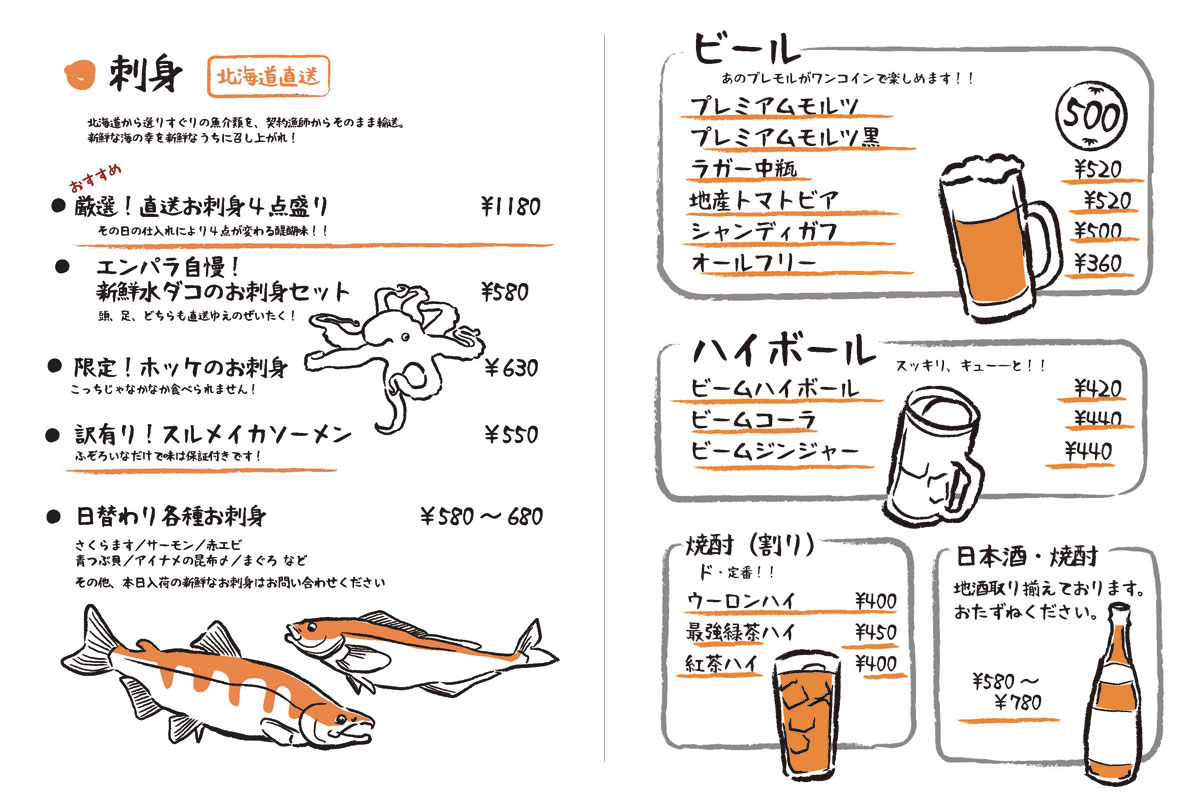 刺身
北海道直送
北海道から選りすぐりの魚介類を、契約漁師からそのまま輸送。
新鮮な海の幸を新鮮なうちに召し上がれ！
おすすめ
● 厳選！直送お刺身４点盛り ¥1180
その日の仕入れにより４点が変わる醍醐味！！
● エンパラ自慢！
新鮮水ダコのお刺身セット ¥580
頭、足、どちらも直送ゆえのぜいたく！
● 限定！ホッケのお刺身 ¥630
こっちじゃなかなか食べられません！
● 訳有り！スルメイカソーメン ¥550
ふぞろいなだけで味は保証付きです！
● 日替わり各種お刺身 ¥580〜680
さくらます／サーモン／赤エビ
青つぶ貝／アイナメの昆布〆／まぐろ など
その他、本日入荷の新鮮なお刺身はお問い合わせください
ビール
あのプレモルがワンコインで楽しめます！！
プレミアムモルツ
500
プレミアムモルツ黒
ラガー中瓶 ¥520
地産トマトビア ¥520
シャンディガフ ¥500
オールフリー ¥360
ハイボール
スッキリ、キューーと！！
ビームハイボール ¥420
ビームコーラ ¥440
ビームジンジャー ¥440
焼酎（割り）
ド・定番！！
ウーロンハイ ¥400
最強緑茶ハイ ¥450
紅茶ハイ ¥400
日本酒・焼酎
地酒取り揃えております。
おたずねください。
¥580〜
¥780